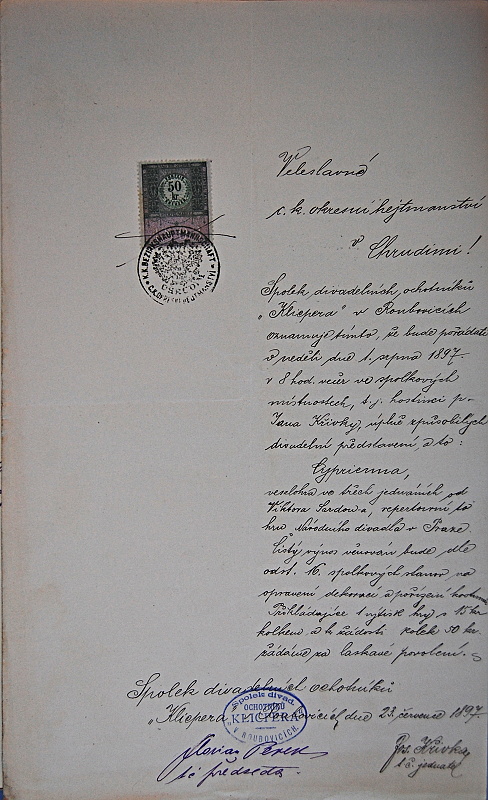 50
kr
K.K. BEZIRKSHAUPTMANNSCHAFT
Veleslavné
c. k. okresní hejtmanství
v Chrudimi!
Spolek divadelních ochotníků
„Klicpera" v Roubovicích
oznamuje tímto, že bude pořádati
v neděli dne 1. srpna 1897
v 8 hod. večer ve spolkových
místnostech, t. j. hostinci p.
Jana Křivky, úplně způsobilých
divadelní představení, a to:
Cyprienna,
veselohra ve třech jednáních od
Viktora Sardou-a, repertoirní to
hru Národního divadla v Praze.
Čistý výnos věnován bude dle
odst. 16. spolkových stanov na
opravení dekorací a pořízení
Přikládajíce 1 výtisk hry s 15 kr
kolkem a k žádosti kolek 50 kr.
žádáme za laskavé povolení.
Spolek divadelních ochotníků
„Klicpera" v Roubovicích dne 23. července 1897.
Spolek divad.
OCHOTNÍKŮ
KLICPERA
V ROUBOVICÍCH.
Florian
t č předseda.
Jos. Křivka
t. č. jednatel